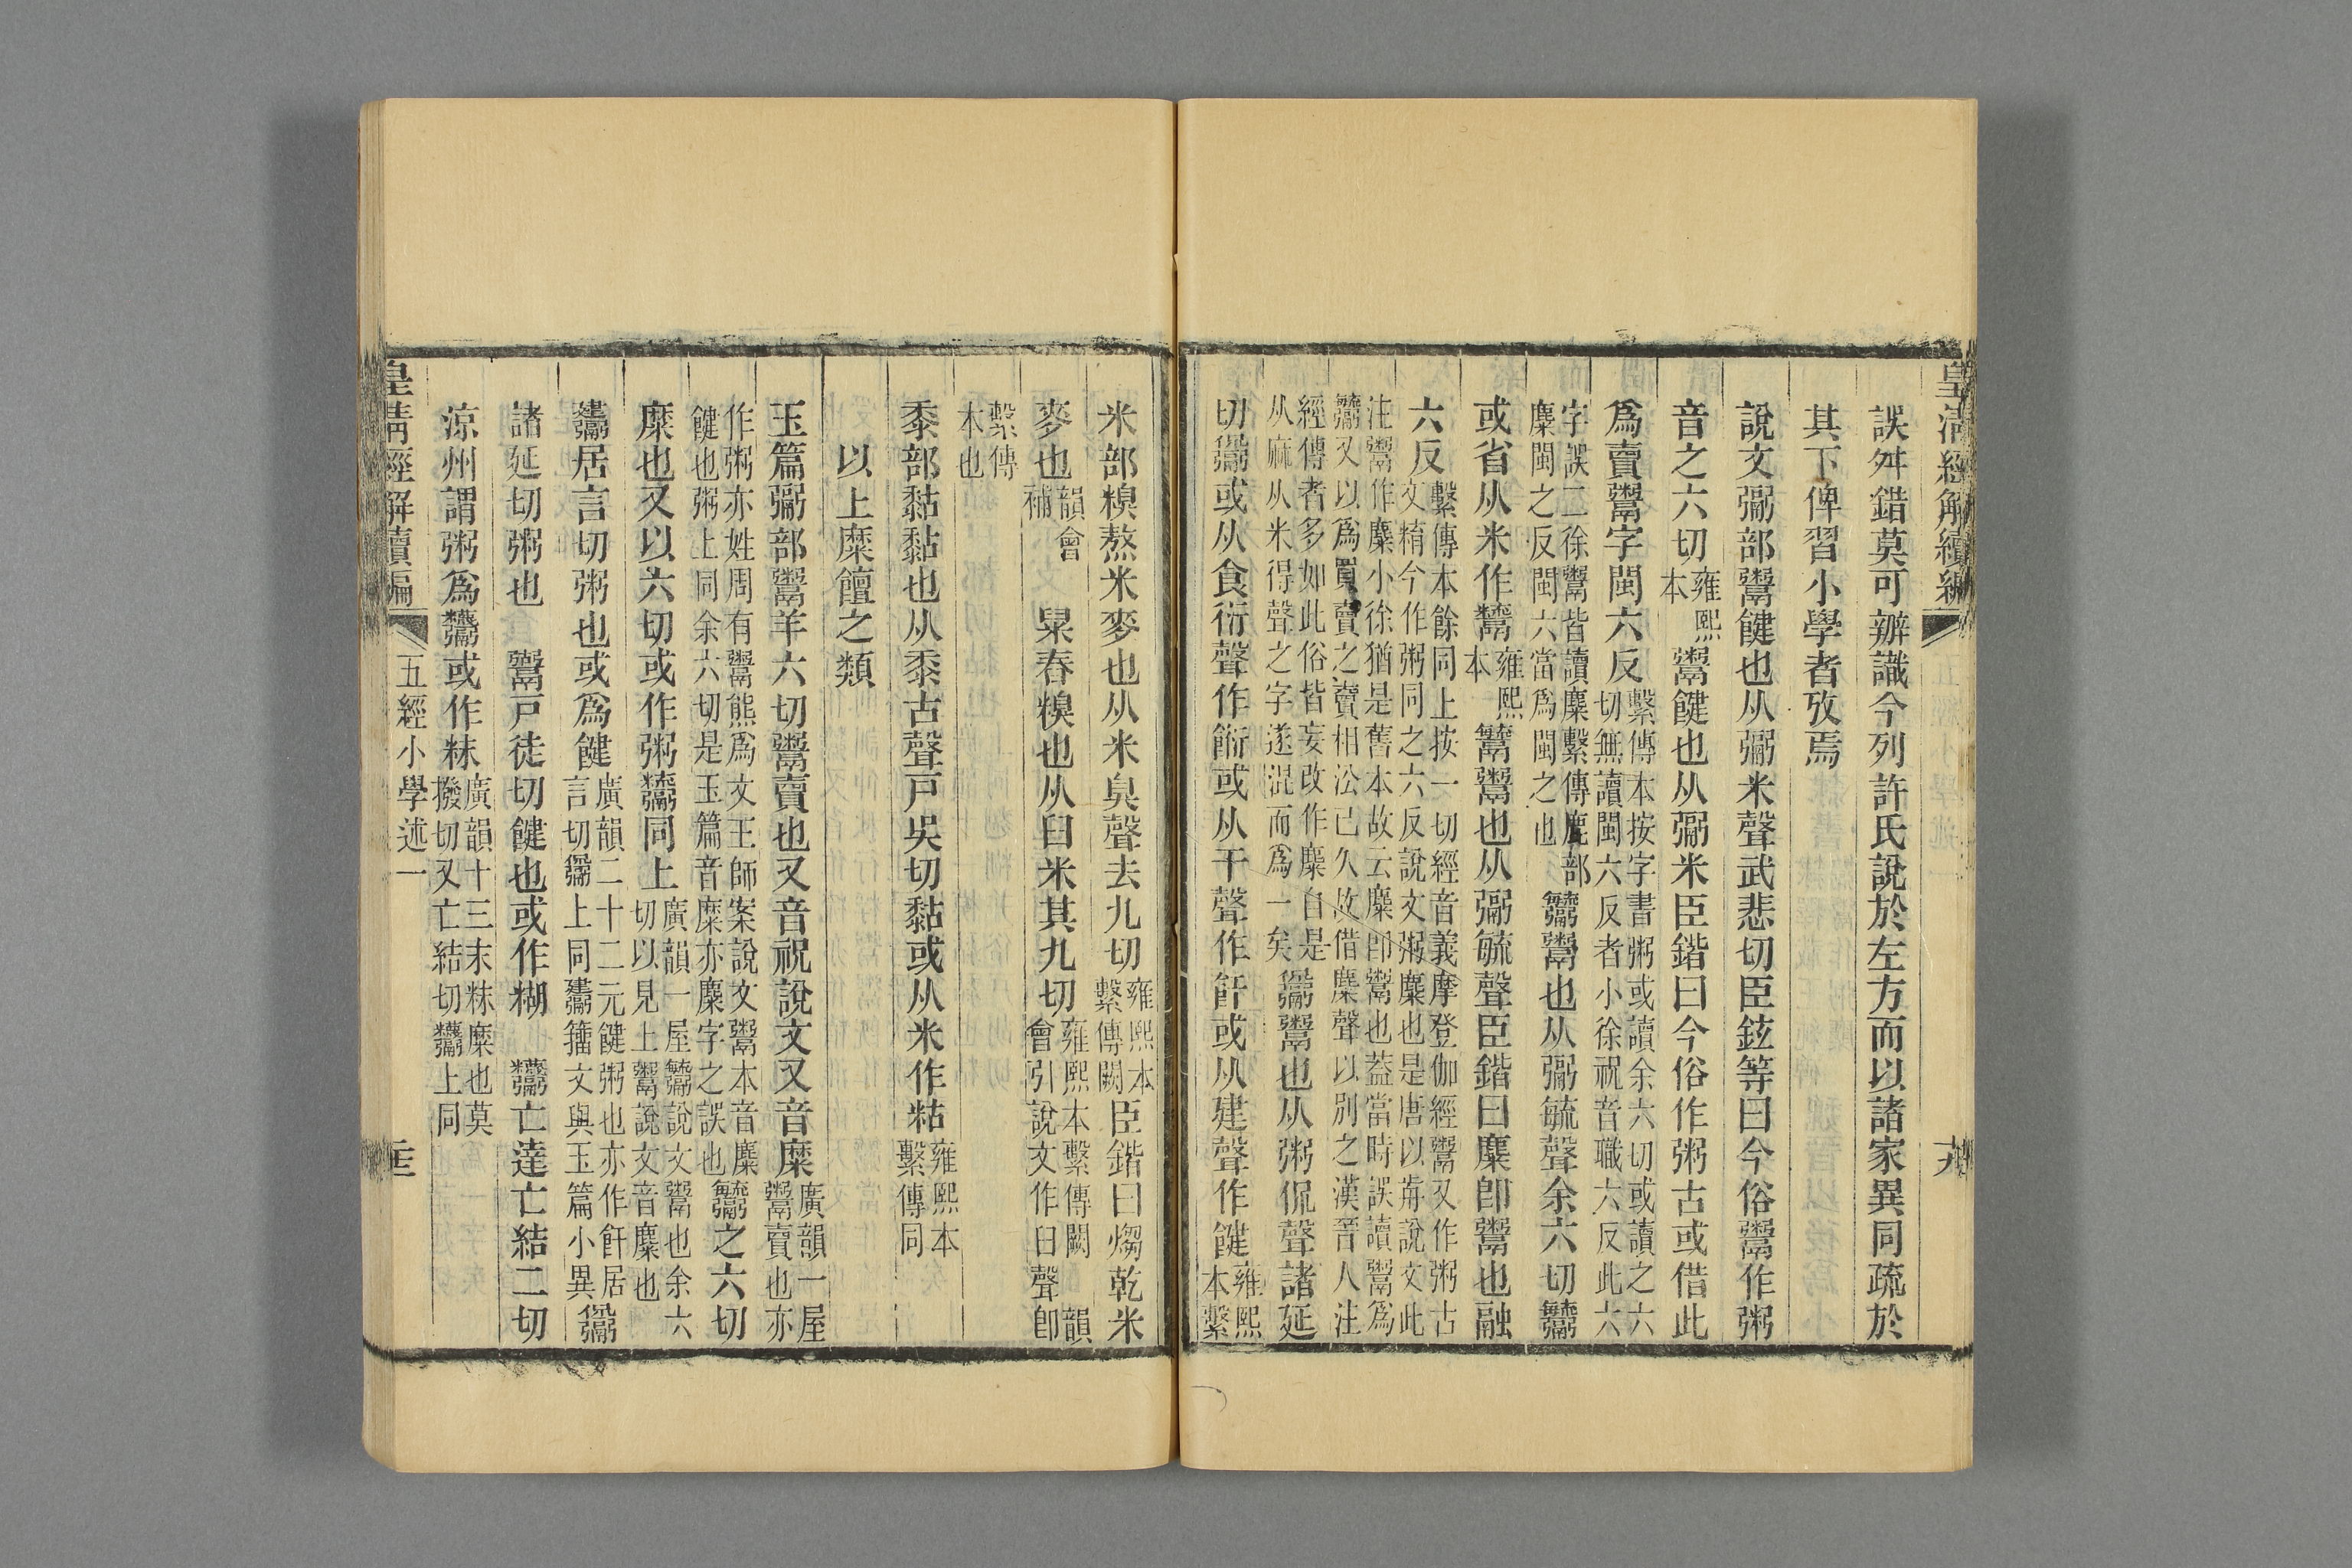 皇清經解續編
誤舛錯莫可辦識今列許氏說於左方而以諸家異同疏於
其下俾習小學者攷焉
說文䰜部鬻䭈也从䰜米聲武悲切臣鉉等曰今俗鬻作粥
音之六切雍熙本鬻䭈也从䰜米臣鍇曰今俗作粥古或借此
爲賣鬻字閩六反繫傳本按字書粥或讀余六切或讀之六切無讀閩六反者小徐祝音職六反此六
字誤二徐鬻皆讀麋繫傳部麋閩之反閩六當爲閩之也鬻也从䰜毓聲余六切
或省从米作雍熙本鬻也从䰜毓聲臣鍇曰麋卽鬻也融
六反繫傳本餘同上按一切經音義摩登伽經鬻又作粥古文精今作粥同之六反說文粥麋也是唐以前說文此
注鬻作麋小徐猶是舊本故云麋卽鬻也蓋當時誤讀鬻爲又以爲買賣之賣相沿已久故借麋聲以別之漢晉人注
經傳者多如此俗皆妄改作麋自是从麻从米得聲之字遂混而爲一矣鬻也从粥侃聲諸延
切或从食衍聲作餰或从干聲作飦或从建聲作䭈雍熙本繫
米部糗熬米麥也从米臭聲去九切雍熙本繫傳闕臣鍇曰煼乾米
麥也韻會補䊆舂糗也从臼米其九切雍熙本繫傳闕韻會引說文作臼聲卽
繫傳本也
黍部黏黏也从黍古聲戸吳切黏或从米作粘雍熙本繫傳同
以上糜饘之類
玉篇䰜部鬻羊六切鬻賣也又音祝說文又音糜廣韻一屋鬻賣也亦
作粥亦姓周有鬻熊爲文王師案說文鬻本音麋䭈也粥上同余六切是玉篇音糜亦麋字之誤也之六切
糜也又以六切或作粥同上廣韻一屋說文鬻也余六切以見上鬻說文音麋也
居言切粥也或爲䭈廣韻二十二元䭈粥也亦作飦居言切上同籒文與玉篇小異
諸延切粥也戸徒切䭈也或作糊亡達亡結二切
涼州謂粥爲或作䊳廣韻十三末䊳糜也莫撥切又亡結切上同
皇清經解續編
五經小學述一